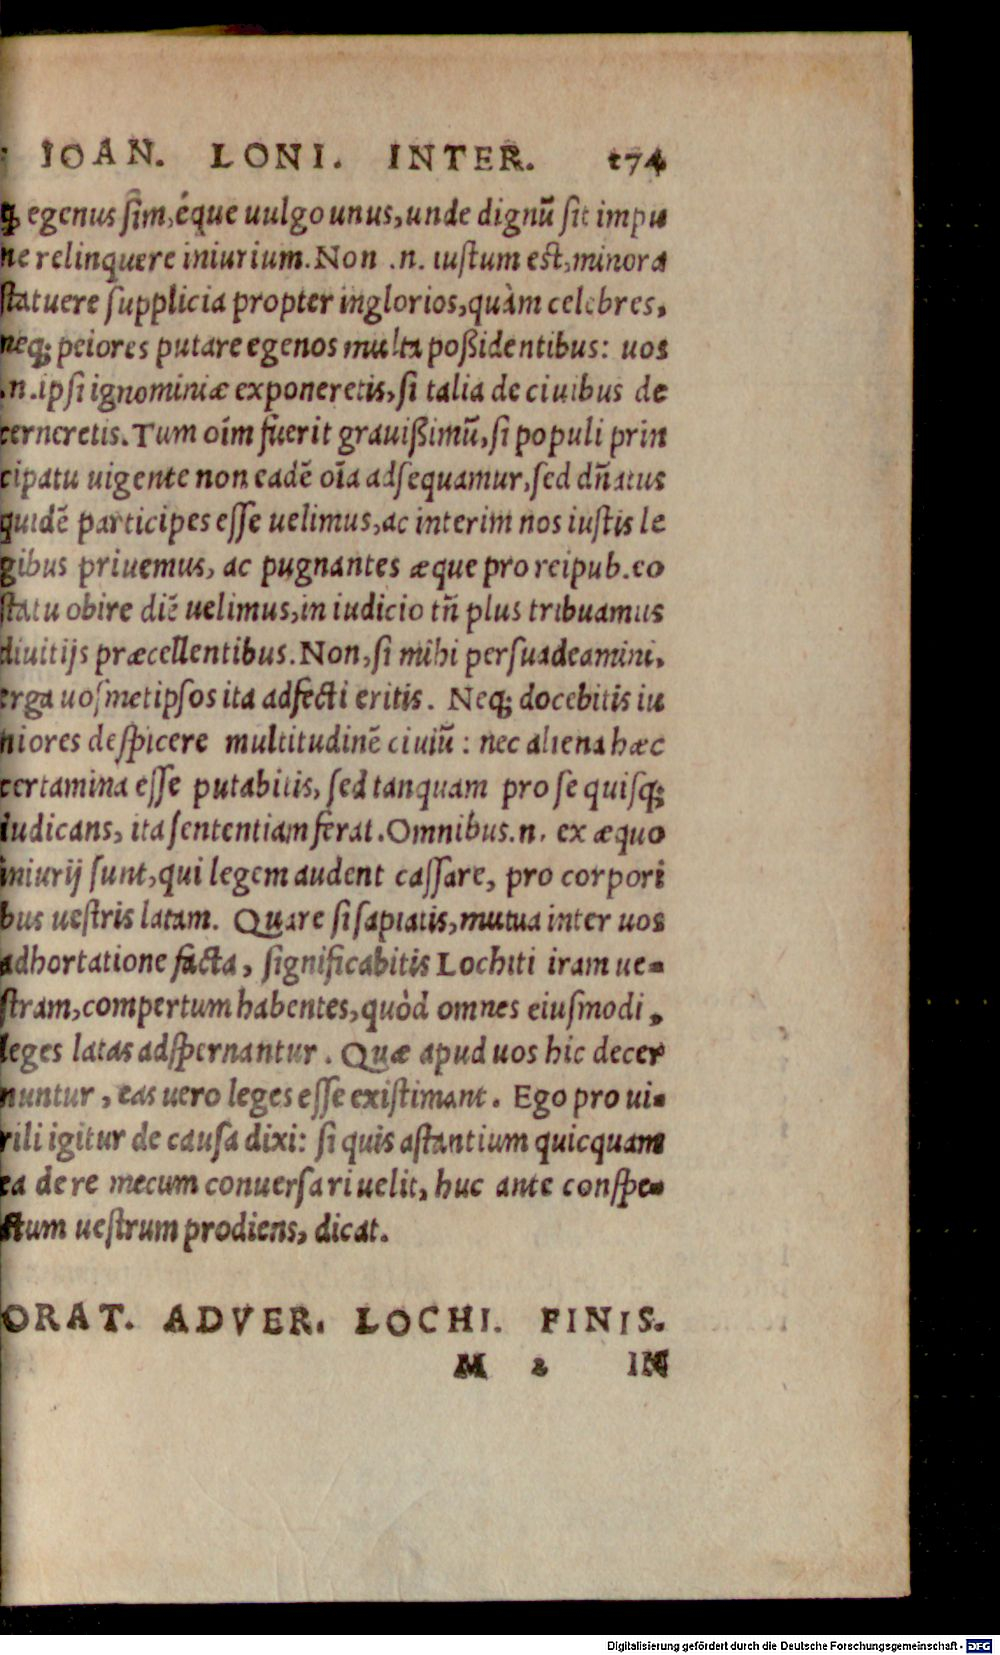 : IOAN. LONI. INTER. 174
ꝙ egenus ſim, éque uulgo unus, unde dignũ ſit impu
ne relinquere iniurium. Non .n. iuſtum eſt, minora
ſtatuere ſupplicia propter inglorios, quàm celebres,
neq; peiores putare egenos multa poßidentibus: uos
.n. ipſi ignominiæ exponeretis, ſi talia de ciuibus de
cerneretis. Tum oĩm fuerit grauißimũ, ſi populi prin
cipatu uigente non eadẽ oĩa adſequamur, ſed dñatus
quidẽ participes eſſe uelimus, ac interim nos iuſtis le
gibus priuemus, ac pugnantes æque pro reipub. eo
ſtatu obire diẽ uelimus, in iudicio tñ plus tribuamus
diuitijs præcellentibus. Non, ſi mihi perſuadeamini,
erga uoſmetipſos ita adfecti eritis. Neq; docebitis iu
niores deſpicere multitudinẽ ciuiũ : nec aliena hæc
certamina eſſe putabitis, ſed tanquam pro ſe quiſq;
iudicans, ita ſententiam ferat. Omnibus .n. ex æquo
iniurij ſunt, qui legem audent caſſare, pro corpori
bus ueſtris latam. Quare ſi ſapiatis, mutua inter uos
adhortatione facta, ſignificabitis Lochiti iram ue-
ſtram, compertum habentes, quòd omnes eiuſmodi,
leges latas adſpernantur. Quæ apud uos hic decer
nuntur, eas uero leges eſſe exiſtimant. Ego pro ui-
rili igitur de cauſa dixi: ſi quis aſtantium quicquam
ea de re mecum conuerſari uelit, huc ante conſpe-
ctum ueſtrum prodiens, dicat.
ORAT. ADVER. LOCHI. FINIS.
M 2 IN
Digitalisierung gefördert durch die Deutsche Forschungsgemeinschaft - DFG